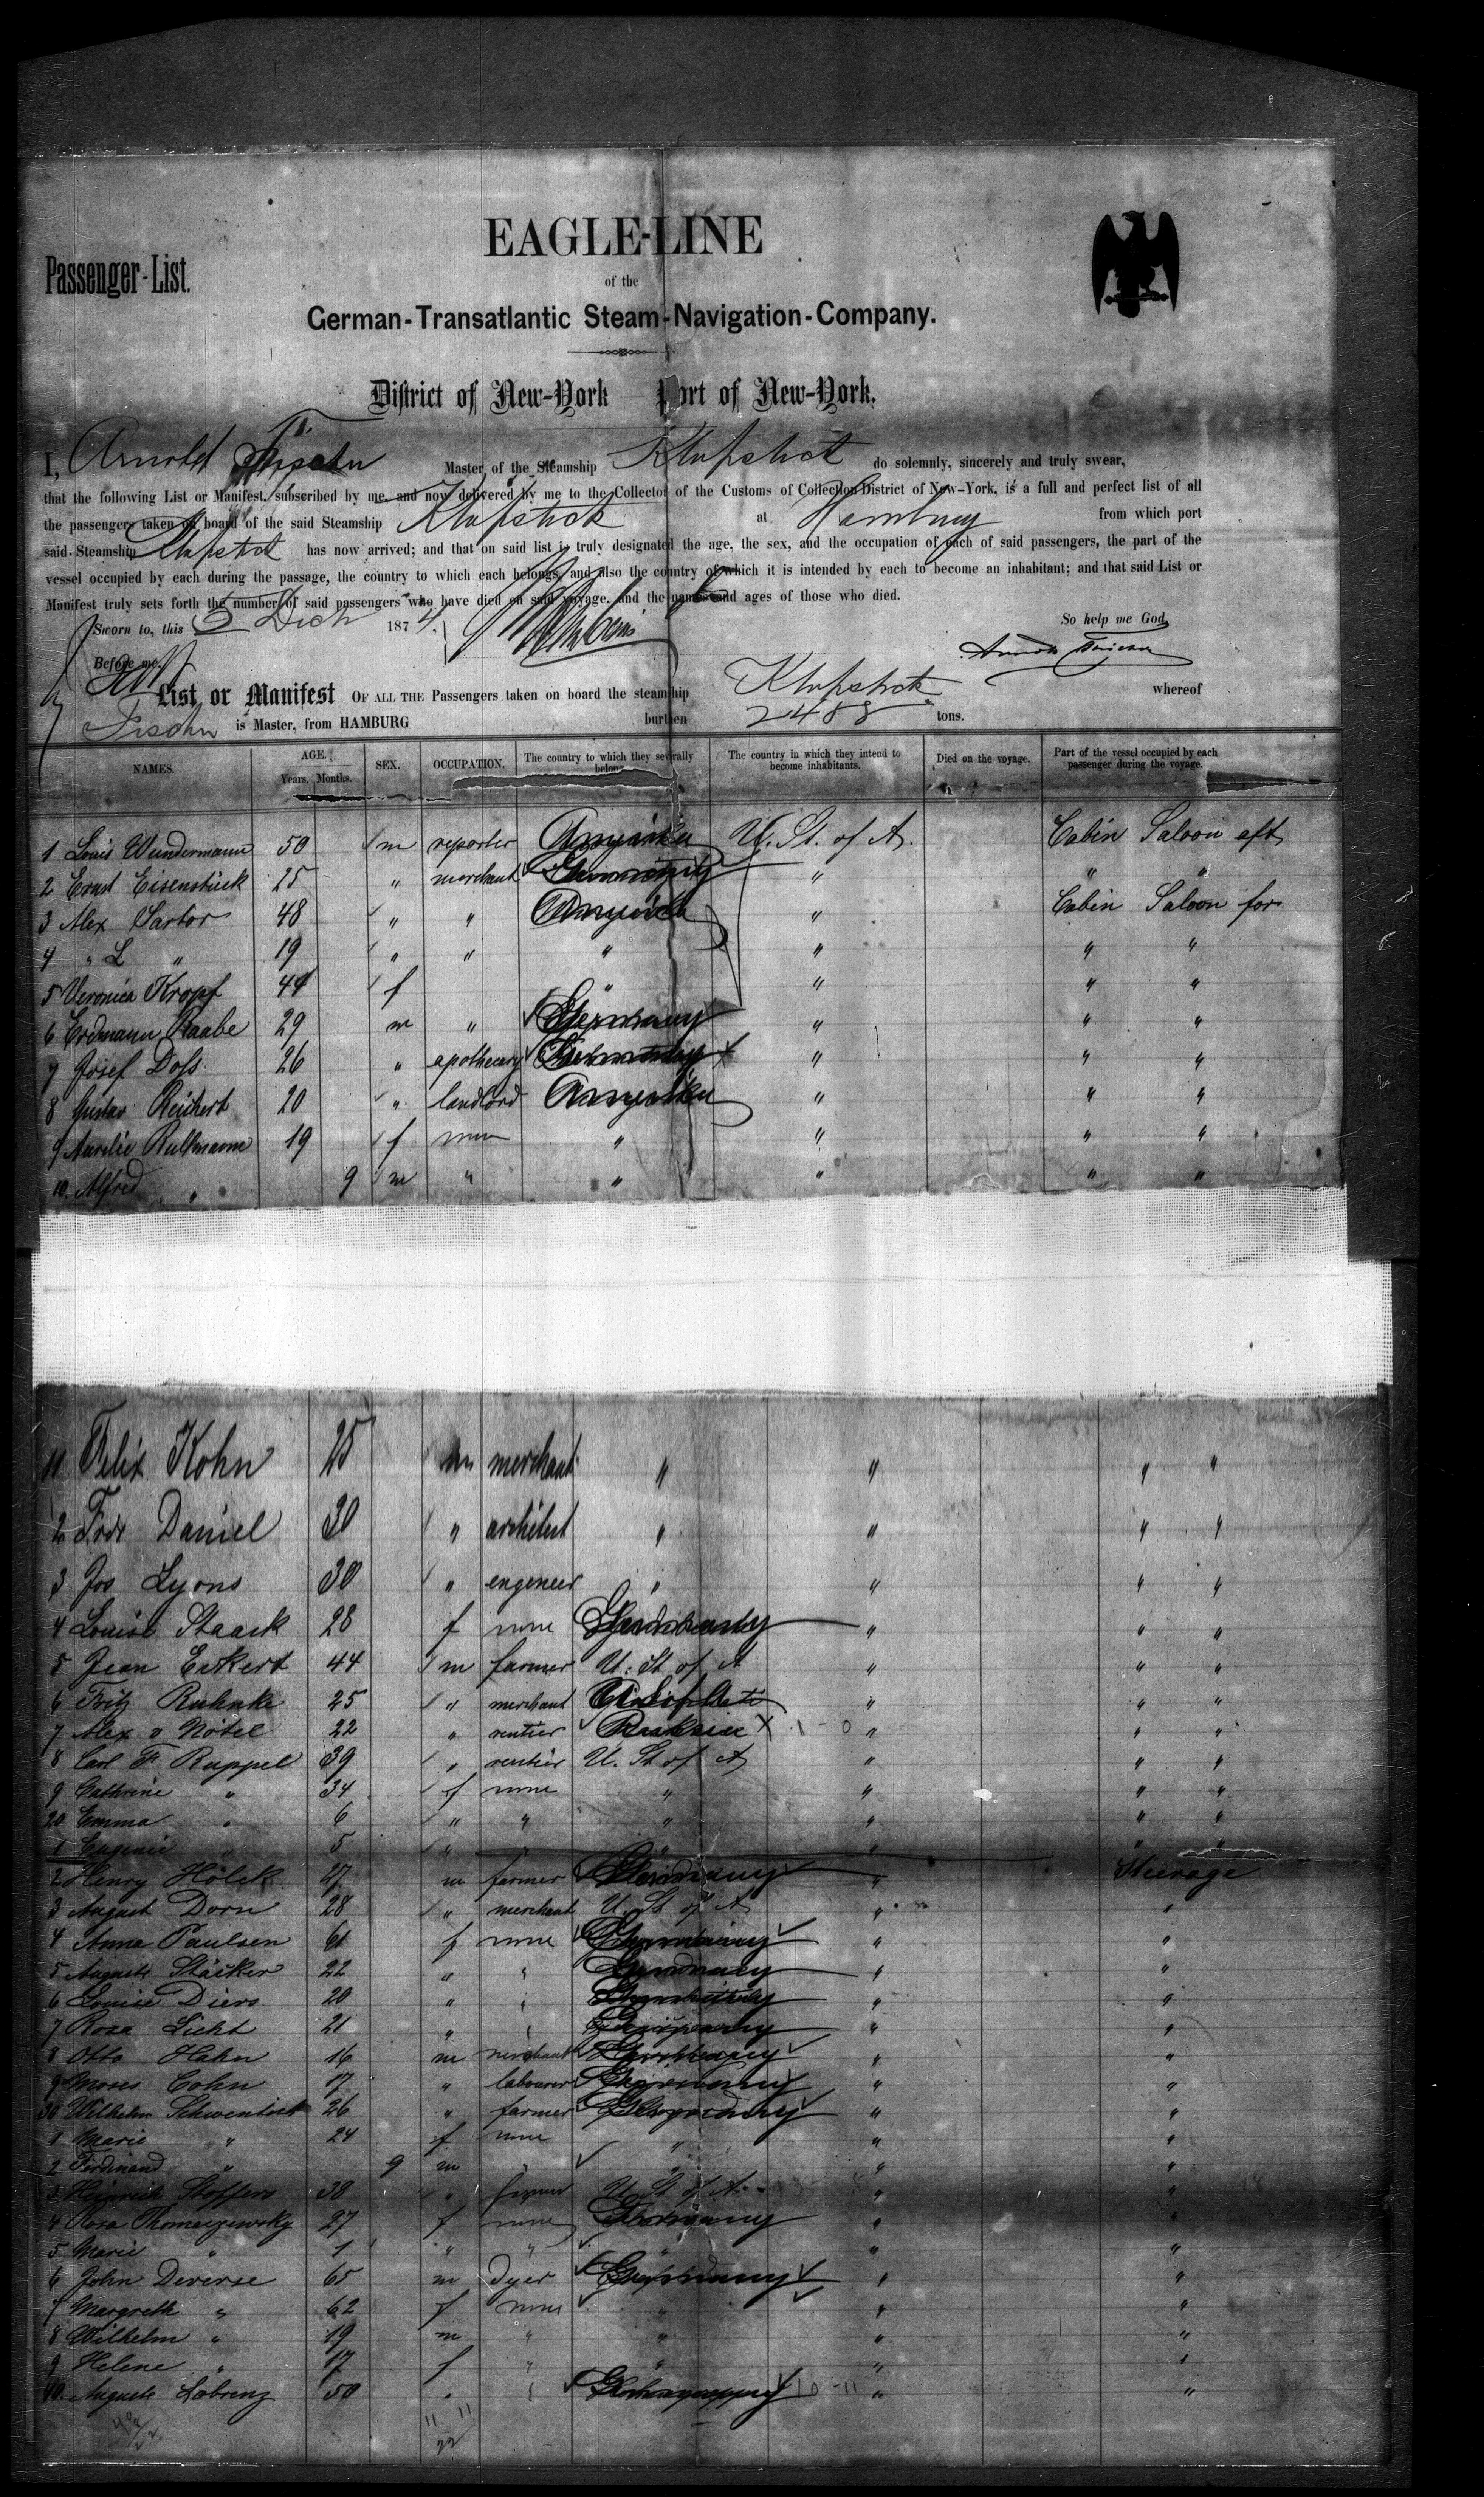 EAGLE-LINE
Passenger-List.
of the
German-Transatlantic Steam-Navigation-Company.
District of New-York Port of New-York.
I, Arnold Master of the Steamship Klopstock do solemnly, sincerely and truly swear,
that the following List or Manifest, subscribed by me, and now delivered by me to the Collector of the Customs of Collection District of New-York, is a full and perfect list of all
the passengers taken on board of the said Steamship Klopstock at Hamburg from which port
said Steamship Klopstock has now arrived; and that on said list is truly designated the age, the sex, and the occupation of each of said passengers, the part of the
vessel occupied by each during the passage, the country to which each belongs, and also the country of which it is intended by each to become an inhabitant; and that said List or
Manifest truly sets forth the number of said passengers who have died on said voyage, and the names and ages of those who died.
Sworn to, this 5 Dech 1874 So help me God,
Before me,
List or Manifest OF ALL THE Passengers taken on board the steamship Klopstock whereof
is Master, from HAMBURG burthen 2488 tons.
NAMES. AGE. Years. Months. SEX. OCCUPATION. The country to which they severally belong. The country in which they intend to become inhabitants. Died on the voyage. Part of the vessel occupied by each passenger during the voyage.
1 Louis Wundermann 50 m reporter U. St. of A. Cabin Saloon aft
2 Ernst Eisenstück 25 " merchant " " "
3 Alex Sartor 48 " " " Cabin Saloon for
4 " L " 19 " " " " " "
5 Veronica Kropf 44 f " " " "
6 Erdmann Raabe 29 m " Germany " " "
7 Josef Doss 26 " apothecary " " "
8 Gustav Reichert 20 " landlord " " "
9 Aurelie Rullmann 19 f none " " " "
10 Alfred " 9 m " " " " "
11 Felix Kohn 25 m merchant " " " "
2 Fred Daniel 30 " architect " " " "
3 Jos Lyons 30 " engeneer " " " "
4 Louise Staack 28 f none Germany " " "
5 Jean Eckert 44 m farmer U. St of A " " "
6 Fritz Ruhnke 25 " merchant " " "
7 Alex v Nötel 22 " rentier " " "
8 Carl F. Ruppel 39 " rentier U. St of A " " "
9 Cathrine " 34 f none " " " "
20 Emma " 6 " " " " " "
1 Eugenie " 5 " " " " " "
2 Henry Hölck 27 m farmer Germany " Steerage
3 August Dorn 28 " merchant U. St of A " "
4 Anna Paulsen 61 f none Germany " "
5 Auguste Stäcker 22 " " Germany " "
6 Louise Diers 20 " " Germany " "
7 Rosa Licht 21 " " Germany " "
8 Otto Hahn 16 m merchant Germany " "
9 Moses Cohn 17 " labourer Germany " "
30 Wilhelm Schwentick 26 " farmer Germany " "
1 Marie " 24 f none " " "
2 Ferdinand " 9 m " " " "
3 Heinrich Stoffers 38 " farmer U. St of A. " "
4 Rosa Thomaszewsky 27 f none Germany " "
5 Marie " 1 " " " " "
6 John Deverse 65 m Dyer Germany " "
7 Margreth " 62 f none " " "
8 Wilhelm " 19 m " " " "
9 Helene " 17 f " " " "
40 Auguste Labrenz 50 " " Germany " "
11 11
22